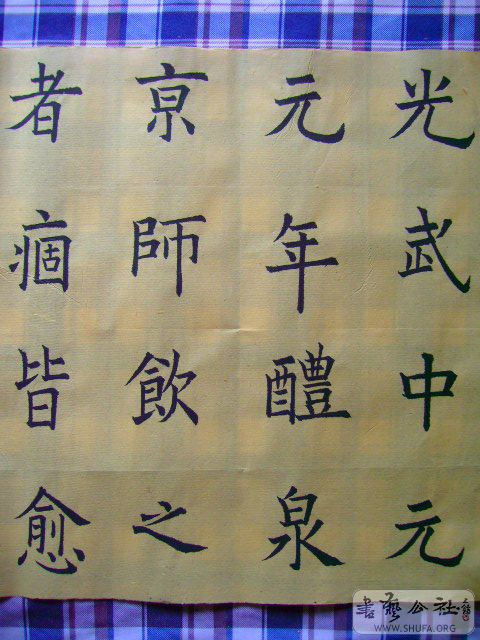 光武中元
元年醴泉
京師飲之
者痼皆愈
書藝公社
WWW.SHUFA.ORG